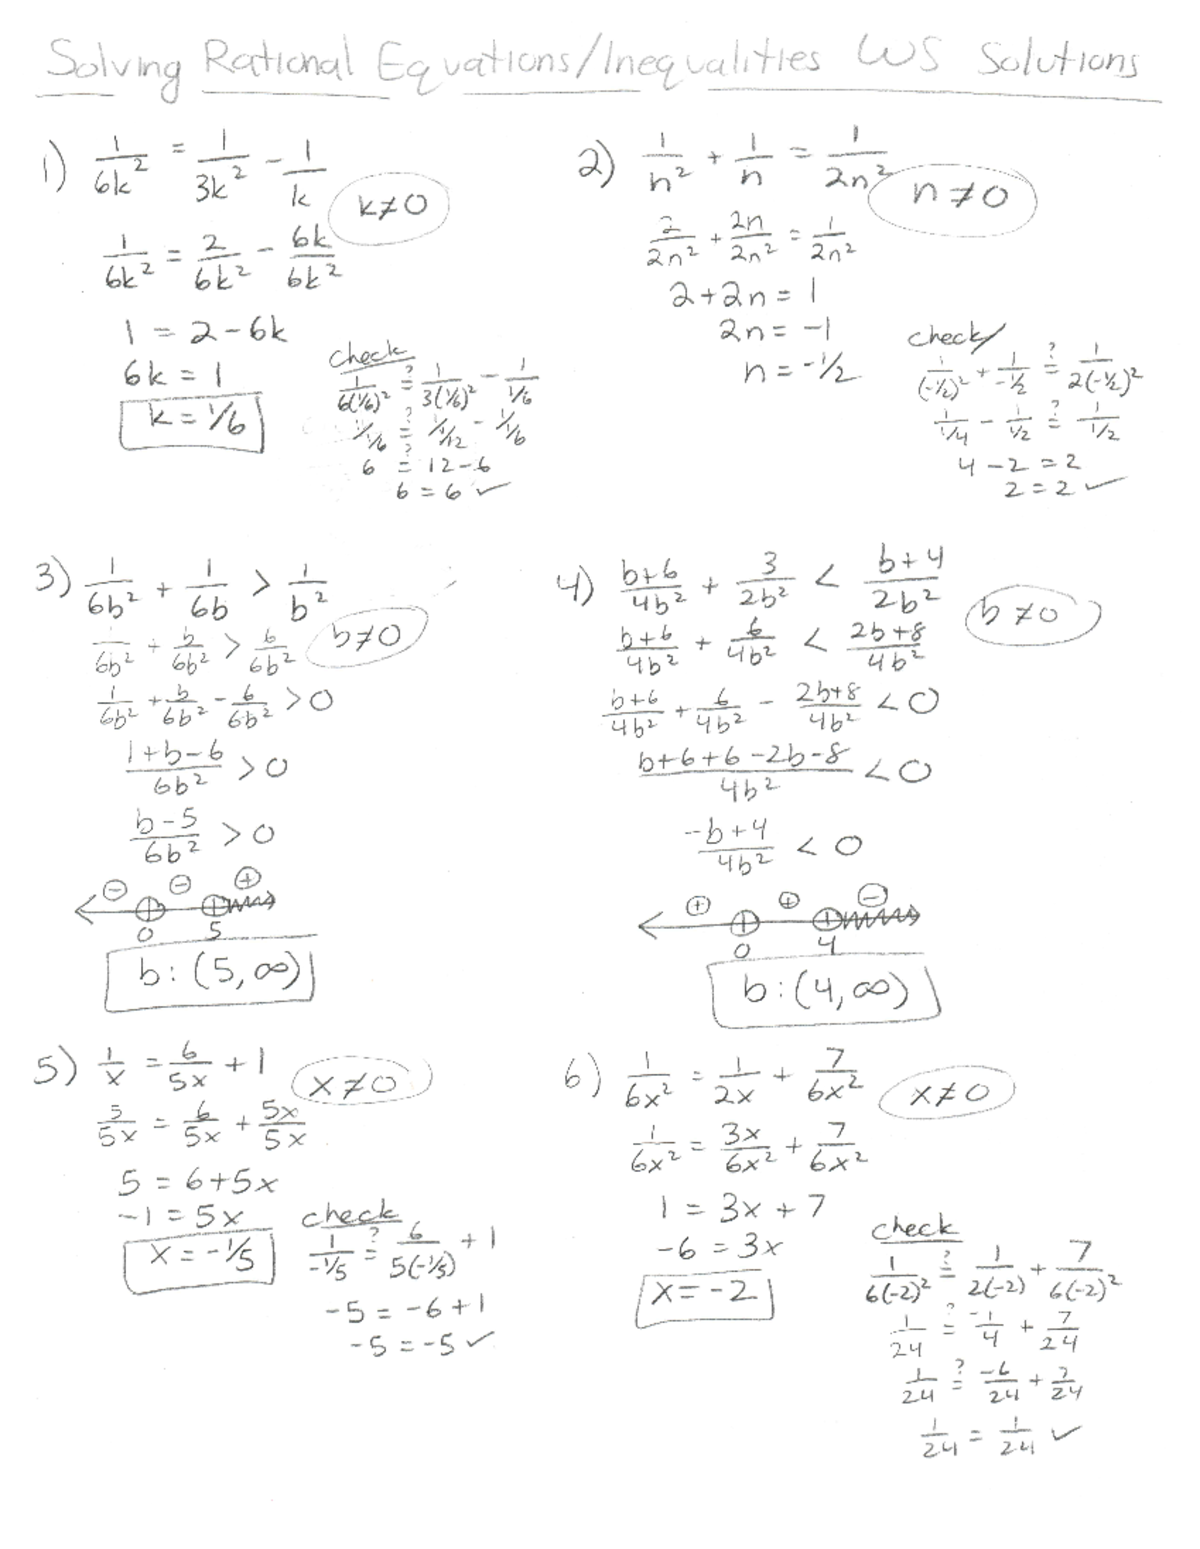 Solving Rational Equations/Inequalities WS Solutions
1) 1/6k² = 1/3k² - 1/k
k≠0
1/6k² = 2/6k² - 6k/6k²
1 = 2-6k
6k = 1
k = 1/6
check
1/6(1/6)² ?= 1/3(1/6)² - 1/1/6
1/1/6 ?= 1/1/12 - 1/1/6
6 ?= 12-6
6 = 6 ✓
2) 1/n² + 1/n = 1/2n²
n≠0
2/2n² + 2n/2n² = 1/2n²
2+2n = 1
2n = -1
n = -1/2
check
1/(-1/2)² + 1/-1/2 ?= 1/2(-1/2)²
1/1/4 - 1/1/2 ?= 1/1/2
4-2 = 2
2=2 ✓
3) 1/6b² + 1/6b > 1/b²
b≠0
1/6b² + b/6b² > 6/6b²
1/6b² + b/6b² - 6/6b² > 0
1+b-6/6b² > 0
b-5/6b² > 0
- - +
0 5
b: (5, ∞)
4) b+6/4b² + 3/2b² < b+4/2b²
b≠0
b+6/4b² + 6/4b² < 2b+8/4b²
b+6/4b² + 6/4b² - 2b+8/4b² < 0
b+6+6-2b-8/4b² < 0
-b+4/4b² < 0
+ + -
0 4
b: (4, ∞)
5) 1/x = 6/5x + 1
x≠0
5/5x = 6/5x + 5x/5x
5 = 6+5x
-1 = 5x
x = -1/5
check
1/-1/5 ?= 6/5(-1/5) + 1
-5 = -6+1
-5 = -5 ✓
6) 1/6x² = 1/2x + 7/6x²
x≠0
1/6x² = 3x/6x² + 7/6x²
1 = 3x + 7
-6 = 3x
x = -2
check
1/6(-2)² ?= 1/2(-2) + 7/6(-2)²
1/24 ?= -1/4 + 7/24
1/24 ?= -6/24 + 7/24
1/24 = 1/24 ✓